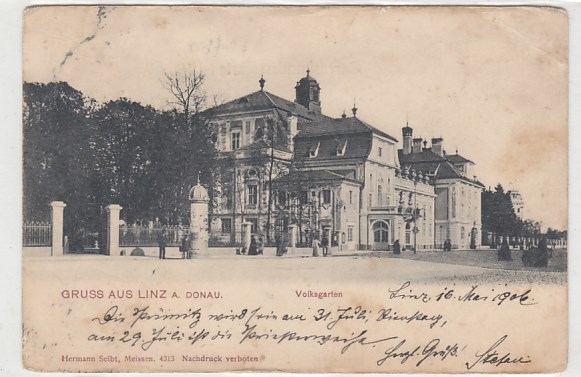 GRUSS AUS LINZ A. DONAU. Volksgarten
Linz, 16. Mai 1906
Die Primitz wird sein am 31. Juli Dienstag,
am 29. Juli ist die Priesterweihe
Herzl. Grüß! Stefan
Hermann Seibt, Meissen. 4313 Nachdruck verboten